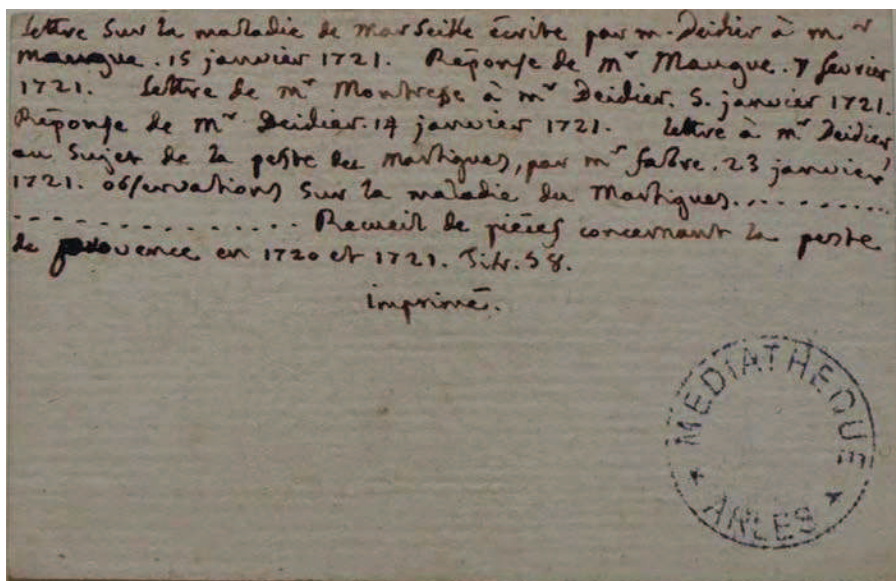 Lettre sur la maladie de Marseille écrite par m. Deidier à mr
Maugue. 15 janvier 1721. Réponse de mr Maugue. 7 fevrier
1721. Lettre de mr Montrese à mr Deidier. 5. janvier 1721.
Réponse de mr Deidier. 14 janvier 1721. Lettre à mr Deidier
au sujet de la peste du Martigues, par mr fabre. 23 janvier
1721. observations sur la maladie du Martigues..........
............. Recueil de piéces concernant la peste
de provence en 1720 et 1721. Titr. 58.
imprimés.
MEDIATHEQUE
ARLES